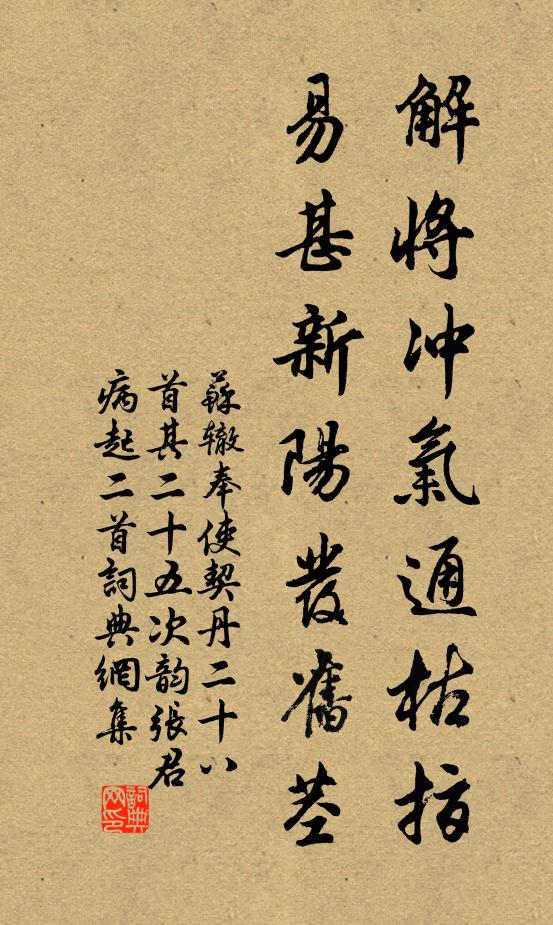 解將冲氣通枯指
易甚新陽發舊茎
蘇轍奉使契丹二十八
首其二十五次韵張君
病起二首詞典網集
詞典网印